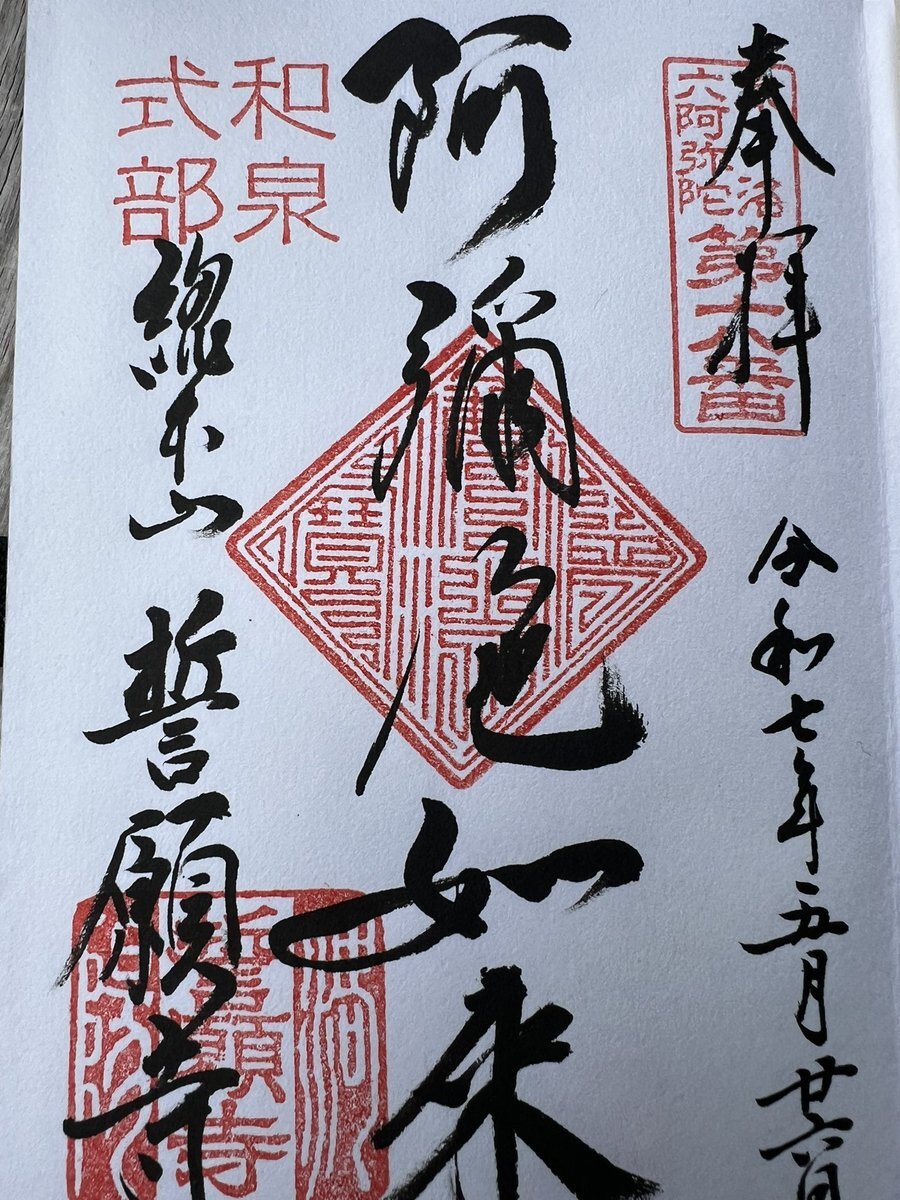 奉拝
洛六阿弥陀
第六番
令和七年五月廿六日
阿彌陀如来
和泉
式部
總本山 誓願寺
誓願寺